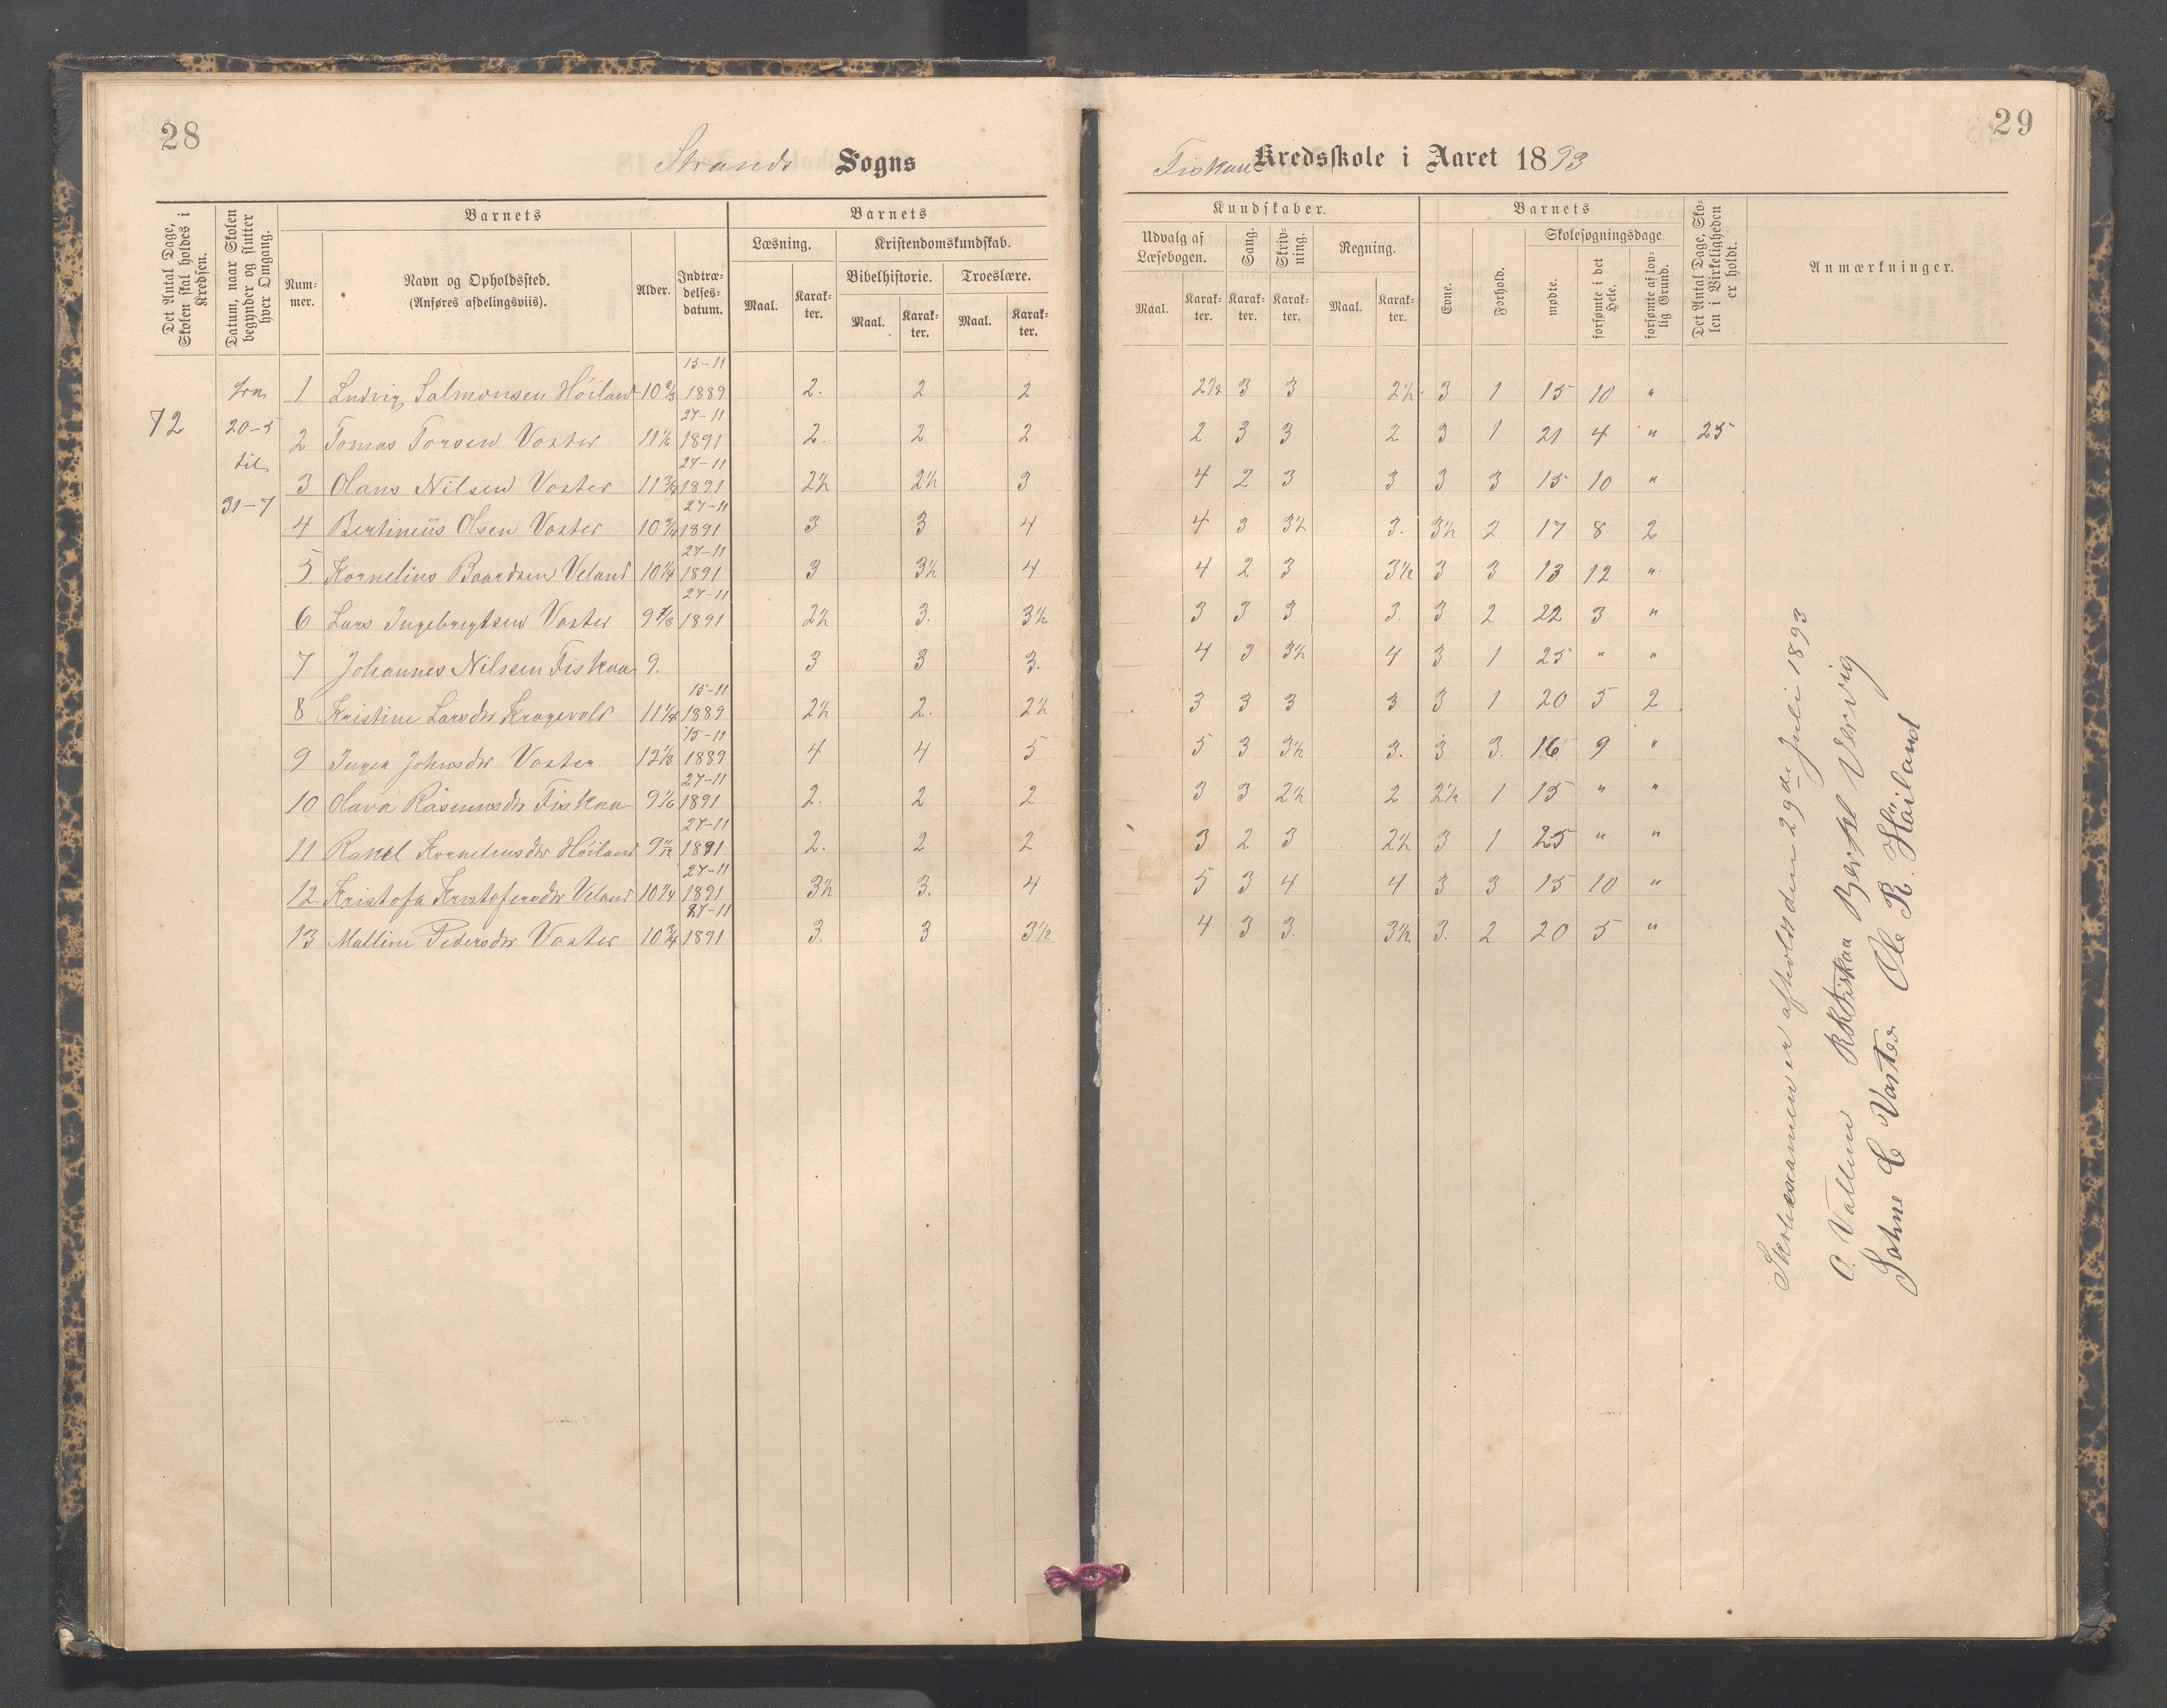 28
Strands Sogns
Det Antal Dage, Skolen skal holdes i Kredsen.
Datum, naar Skolen begynder og slutter hver Omgang.
Barnets
Nummer.
Navn og Opholdssted.
(Anføres afdelingsviis).
Alder.
Indtrædelsesdatum.
Barnets
Læsning.
Maal.
Karakter.
Kristendomskundskab.
Bibelhistorie.
Maal.
Karakter.
Troeslære.
Maal.
Karakter.
72
fra
20-5
til
31-7
1 Ludvig Salmonsen Höiland 10 15-11 1889 2. 2 2
2 Tomas Torsen Voster 11 1/6 27-11 1891 2. 2 2
3 Olans Nilsen Voster 11 3/4 27-11 1891 2½ 2½ 3
4 Bertinius Olsen Voster 10 3/4 27-11 1891 3 3 4
5 Kornelius Baardsen Veland 10 1/4 27-11 1891 3 3½ 4
6 Lars Ingebregtsen Voster 9 27-11 1891 2½ 3. 3½
7 Johannes Nilsen Fiskaa 9. 3 3 3.
8 Kristine Larsdtr Kragevold 11 1/4 15-11 1889 2½ 2. 2½
9 Inger Johnsdtr Voster 12 1/3 15-11 1889 4 4 5
10 Olava Rasmusdtr Fiskaa 9 1/6 27-11 1891 2. 2 2
11 Rakel Korneliusdtr Höiland 9 11/12 27-11 1891 2. 2 2
12 Kristofa Kristofersdtr Veland 10 1/4 27-11 1891 3½ 3. 4
13 Malline Pedersdtr Voster 10 3/4 27-11 1891 3. 3 3½
29
Fiskaa Kredsskole i Aaret 1893
Kundskaber.
Udvalg af Læsebogen.
Maal.
Karakter.
Sang.
Karakter.
Skrivning.
Karakter.
Regning.
Maal.
Karakter.
Barnets
Evne.
Forhold.
Skolesøgningsdage.
mødte.
forsømte i det Hele.
forsømte af lovlig Grund.
Det Antal Dage, Skolen i Virkeligheden er holdt.
Anmærkninger.
2½ 3 3 2½ 3 1 15 10 "
2 3 3 2 3 1 21 4 " 25
4 2 3 3 3 3 15 10 "
4 3 3½ 3. 3½ 2 17 8 2
4 2 3 3½ 3 3 13 12 "
3 3 3 3. 3 2 22 3 "
4 3 3½ 4 3 1 25 " "
3 3 3 3 3 1 20 5 2
5 3 3½ 3. 3 3. 16 9 "
3 3 2½ 2 2½ 1 15 " "
3 2 3 2½ 3 1 25 " "
5 3 4 4 3 3 15 10 "
4 3 3. 3½ 3. 2 20 5 "
Skoleexamen er afholdt den 29de Juli 1893
O. Vallem RKFiskaa Bertel Vervig
Johne C Voster Ole R. Höiland